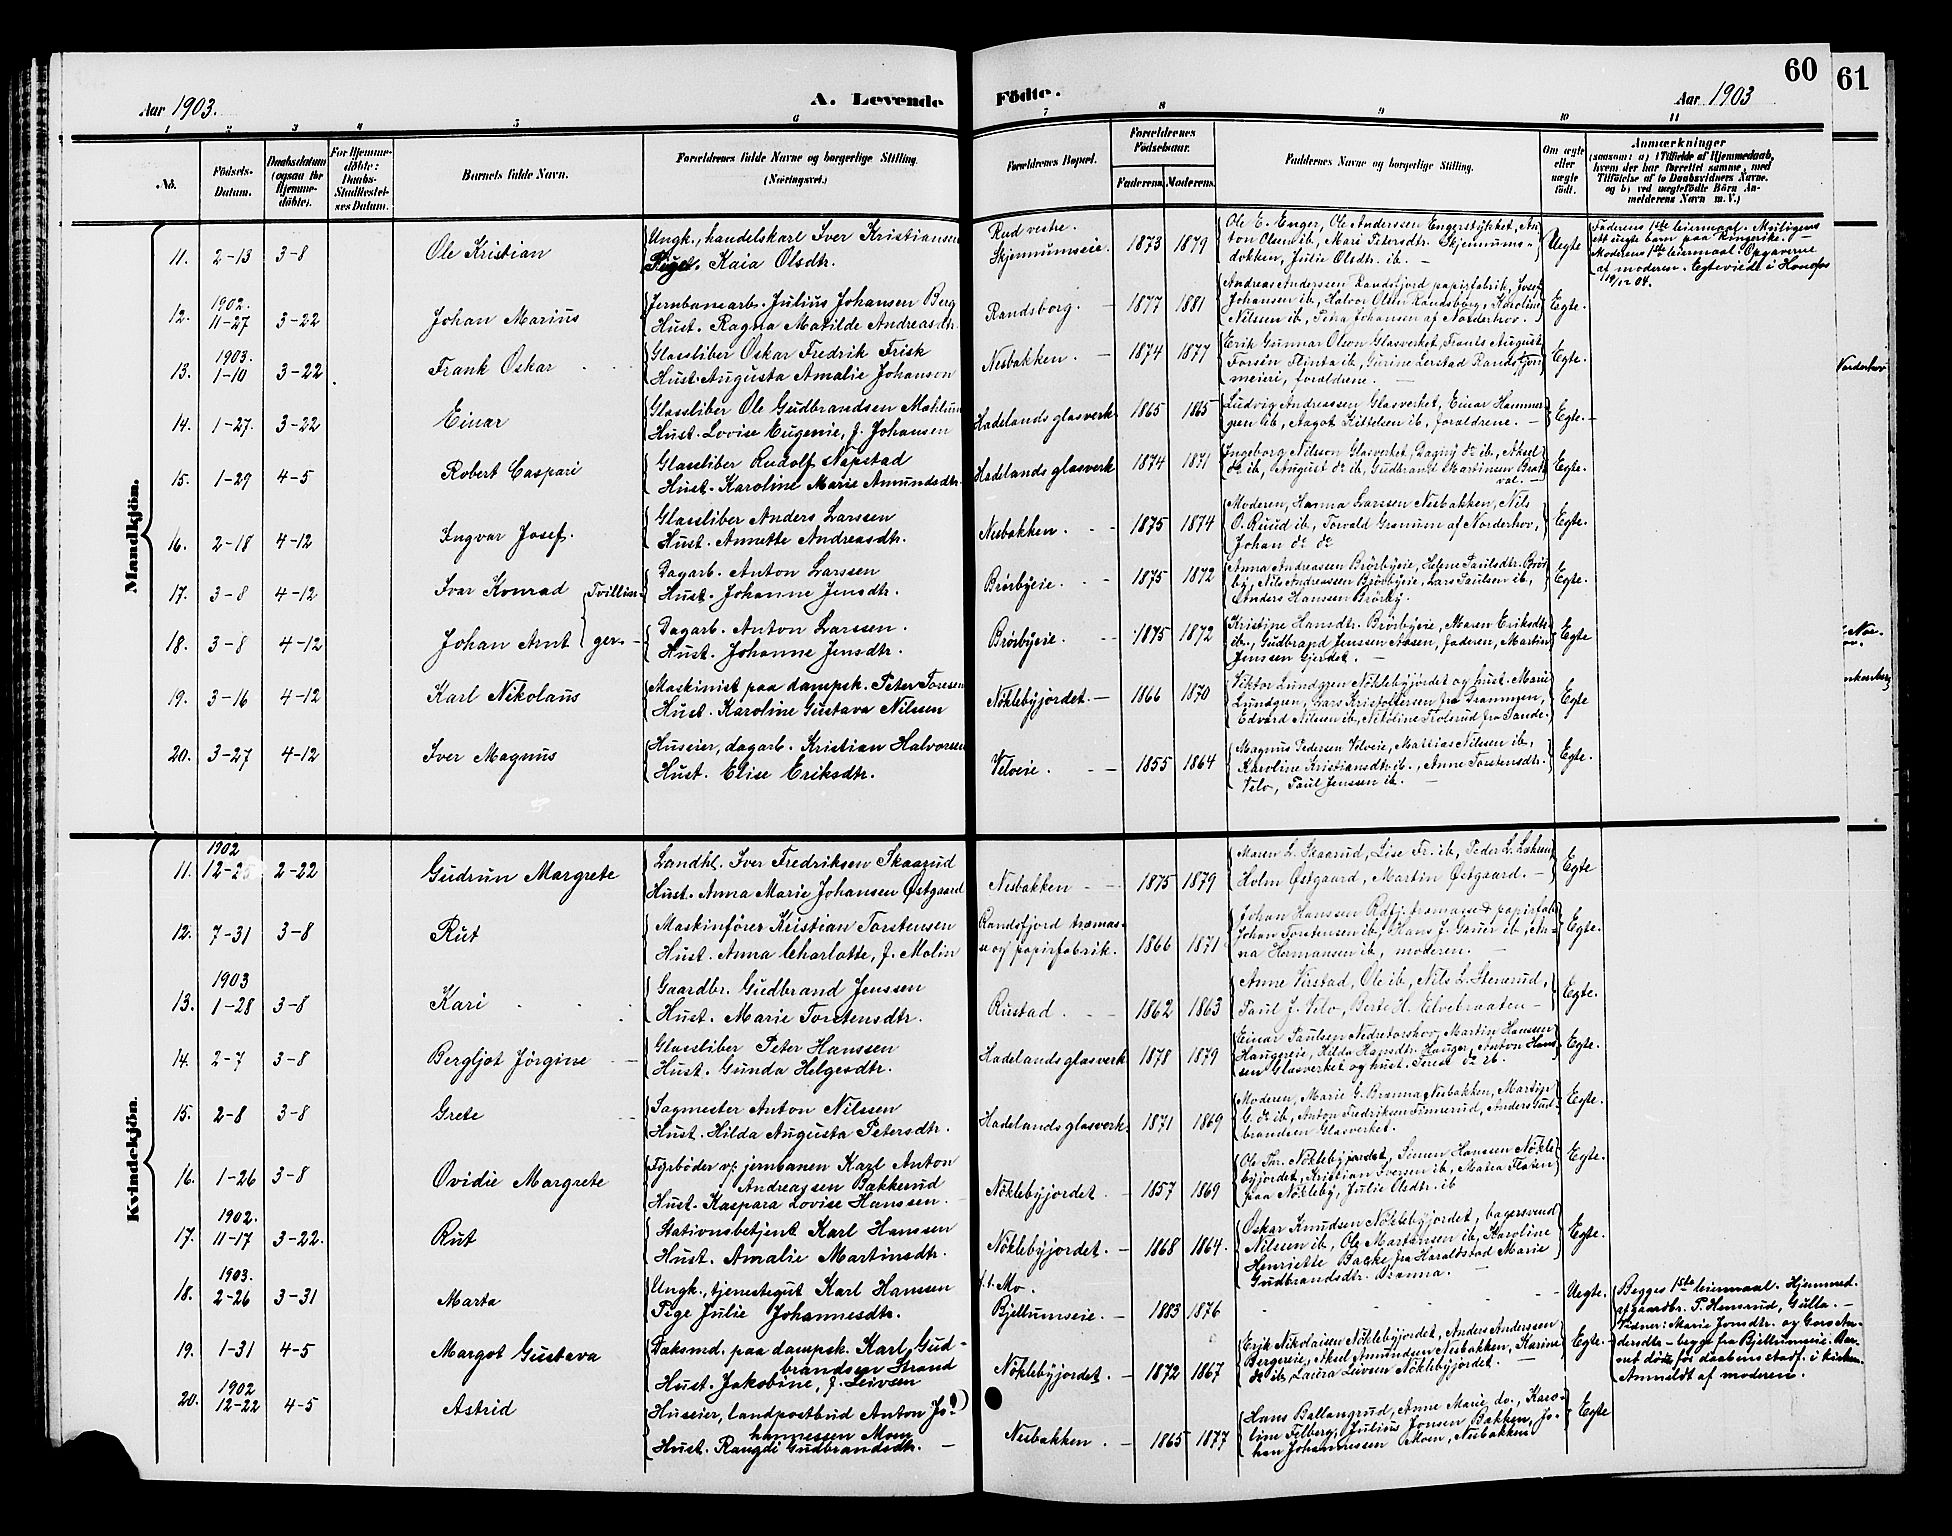 60
61
Aar 1903.
A. Levende
Födte.
Aar 1903
1 2 3 4 5 6 7 8 9 10 11
No.
Födsels-
Datum.
Daabsdatum
(ogsaa for
Hjemme-
döbte).
For Hjemme-
döbte:
Daabs-
Stadfæstel-
ses Datum.
Barnets fulde Navn.
Forældrenes fulde Navne og borgerlige Stilling.
(Næringsvei.)
Forældrenes Bopæl.
Forældrenes
Födselsaar.
Faderens. Moderens.
Faddernes Navne og borgerlige Stilling.
Om ægte
eller
uægte
födt.
Anmærkninger
(saasom: a) i Tilfælde af Hjemmedaab,
hvem der har forrettet samme, med
Tilföielse af to Daabsvidners Navne,
og b) ved uægtefödte Börn An-
melderens Navn m. V.)
Mandkjön.
11. 2-13 3-8 Ole Kristian
Ungk., handelskarl Iver Kristiansen
Pige. Kaia Olsdtr.
Rud vestre.
Skjennumseie. 1873 1879
Ole E. Enger, Ole Anderssen Engerstykket, An-
ton Olsen ib., Mari Petersdtr. Skjennums-
dokken, Julie Olsdtr. ib. -
Uegte
Faderens 1ste leiermaal. Muligens
ett uegte barn paa Ringerike. -
Moderens 1ste leiermaal. Opgaverne
af moderen. Egteviede i Honefos
12. 1902. 11-27 3-22 Johan Marius
Jernbanearb. Julius Johansen Berg
Hust. Ragna Matilde Andreasdtr.
Randsborg. 1877 1881
Andreas Anderssen Randsfjord papirfabrik, Josef
Johansen ib., Halvor Olsen Randsborg, Karoline
Nilssen ib., Petra Johansen af Norderhov. -
Egte.
13. 1903. 1-10 3-22 Frank Oskar
Glassliber Oskar Fredrik Frisk
Hust. Augusta Amalie Johanson
Nesbakken. - 1874 1877
Erik Gunnar Olson Glasverket, Frants August
Forsén Flinta ib., Gurine Lerstad Randsfjord
meieri, forældrene. -
Egte.
14. 1-27. 3-22 Einar
Glassliber Ole Gudbrandsen Mohlum
Hust. Lovise Eugenie, f. Johansen
Hadelands glasverk 1865 1865
Ludvig Andreassen Glasverket, Einar Hammer-
gren ib., Aagot Kittelsen ib., forældrene. -
Egte.
15. 1-29 4-5 Robert Caspari
Glassliber Rudolf Næpstad
Hust. Karoline Marie Amundsdtr.
Hadelands glasverk 1874 1871
Ingeborg Nilsson Glasverket, Dagny do ib., Aksel
do ib., August do ib., Gudbrand Martinsen Brat-
val. -
Egte.
16. 2-18 4-12 Ingvar Josef.
Glassliber Anders Larssen
Hust. Annette Andreasdtr.
Nesbakken. 1875 1874
Moderen, Hanna Larssen Nesbakken, Nils
O. Ruud ib., Torvald Granum af Norderhov,
Johan do do
Egte.
17. 3-8 4-12 Ivar Konrad Tvillin-
Dagarb. Anton Larssen
Hust. Johanne Jensdtr.
Brörbyeie. 1875 1872
Anna Andreassen Brörbyeie, Helene Paulsdtr. Brör-
by, Nils Andreassen Brörbyeie, Lars Paulsen ib.,
Anders Hanssen Brörby.
Egte.
18. 3-8 4-12 Johan Arnt ger.
Dagarb. Anton Larssen.
Hust. Johanne Jensdtr.
Brörbyeie. 1875 1872
Kristine Hansdtr. Brörbyeie, Maren Eriksdtr.
ib., Gudbrand Jenssen Aasen, faderen, Martin
Jenssen Gjerdet. -
Egte
19. 3-16 4-12 Karl Nikolaus
Maskinist paa dampsk. Peter Toresen
Hust. Karoline Gustava Nilssen
Nöklebyjordet. - 1866 1870
Viktor Lundgren Nöklebyjordet og hust. Marie
Lundgren, Lars Kristoffersen fra Drammen,
Edvard Nilssen ib., Nikoline Trolsrud fra Sande.
Egte
20. 3-27 4-12 Iver Magnus
Huseier, dagarb. Kristian Halvorsen
Hust. Elise Eriksdtr.
Velveie. 1855 1864
Magnus Pedersen Velveie, Mattias Nilssen ib.,
Karoline Kristiansdtr. ib., Anne Torstensdtr.
Velo, Paul Jenssen ib. -
Egte.
Norderhov
Kvindekjön.
11. 1902 12-25 2-22 Gudrun Margrete
Landhl. Iver Fredriksen Skaarud
Hust. Anna Marie Johansen Østgaard
Nesbakken 1875 1879
Maren L. Skaarud, Lise Fr. ib., Peder L.
Holm Østgaard, Martin Østgaard. -
Egte
12. 7-31 3-8 Rut
Maskinförer Kristian Torstensen
Hust. Anna Charlotte, f. Molin
Randsfjord træmas-
se og papirfabrik. 1866 1871
Johan Hanssen Rdfj. træmasse & papirfab.
Johan Torstensen ib., Hans J. Gauer ib., An-
na Hermansen ib., moderen.
Egte.
13. 1903 1-28 3-8 Kari
Gaardbr. Gudbrand Jenssen
Hust. Marie Torstensdtr.
Rustad. 1862 1863
Anne Virstad, Ole ib., Nils L. Stenerud,
Paul J. Velo, Berte H. Elvebraaten -
Egte.
14. 2-7 3-8 Bergljot Jörgine
Glassliber Peter Hanssen
Hust. Gunda Helgesdtr.
Hadelands glasverk 1878 1879
Einar Paulsen Nedretorshov, Martin Hanssen
Haugereie, Hilda Hansdtr. Hauger, Anton Hans-
sen Glasverket og hust. Terese do ib.
Egte.
15. 2-8 3-8 Grete
Sagmester Anton Nilssen
Hust. Hilda Augusta Petersdtr.
Hadelands glasverk. 1871 1869
Moderen, Marie G. Brænna Nesbakken, Martin
G. do ib., Anton Fredriksen Finnerud, Anders Gud-
brandsen Glasverket.
Egte.
16. 1-26 3-8 Ovidie Margrete
Fyrböder v/ jernbanen Karl Anton
Andreassen Bakkerud
Hust. Kaspara Lovise Hanssen.
Nöklebyjordet. 1857 1869
Ole Thr. Nöklebyjordet, Simen Hanssen Nökle-
byjordet, Kristian Iversen ib., Maria Flaten
paa Nökleby, Julie Olsdtr. ib
Egte.
17. 1902. 11-17 3-22. Rut
Stationsbetjent Karl Hanssen
Hust. Amalie Martinsdtr.
Nöklebyjordet. - 1868 1864.
Oskar Knudsen Nöklebyjordet, bagersvend
Nilssen ib., Ole Martinsen ib., Karoline
Henriette Bakke fra Haraldstad Marie
Gudbrandsdtr. Brænna. -
Egte.
18. 1903. 2-26 3-31 Marta
Ungk., tjenestegut Karl Hanssen
Pige Julie Johannesdtr.
f. t. Mo.
Bjellumseie - 1883 1876
Uegte.
Begges 1ste leiermaal. Hjemmed.
af gaardbr. P. Hensrud, Gulla. -
Vidner: Marie Jonsdtr. og Goro An-
dersdtr - begge fra Bjellumseie. Bar-
net döde för daabens stadf. i kirken.
Anmeldt af moderen.
19. 1-31 4-5 Margot Gustava
Dæksmd. paa dampsk. Karl Gud-
brandsen Strand
Hust. Jakobine, f. Leivsen
Nöklebyjordet. 1872 1867
Erik Nikolaisen Nöklebyjordet, Anders Anderssen
Bergereie, Aksel Amundsen Nesbakken, Karine
do ib., Laura Leivsen Nöklebyjordet. -
Egte.
20. 1902 12-22 4-5 Astrid
Huseier, landpostbud Anton Jo-
hannessen Moen
Hust. Rangdi Gudbrandsdtr. -
Nesbakken. - 1865 1877
Hans Ballangrud, Anne Marie do., Karo-
line Felberg, Julius Jonsen Bakken, Jo-
han Johannessen Moen, Nesbakken
Egte